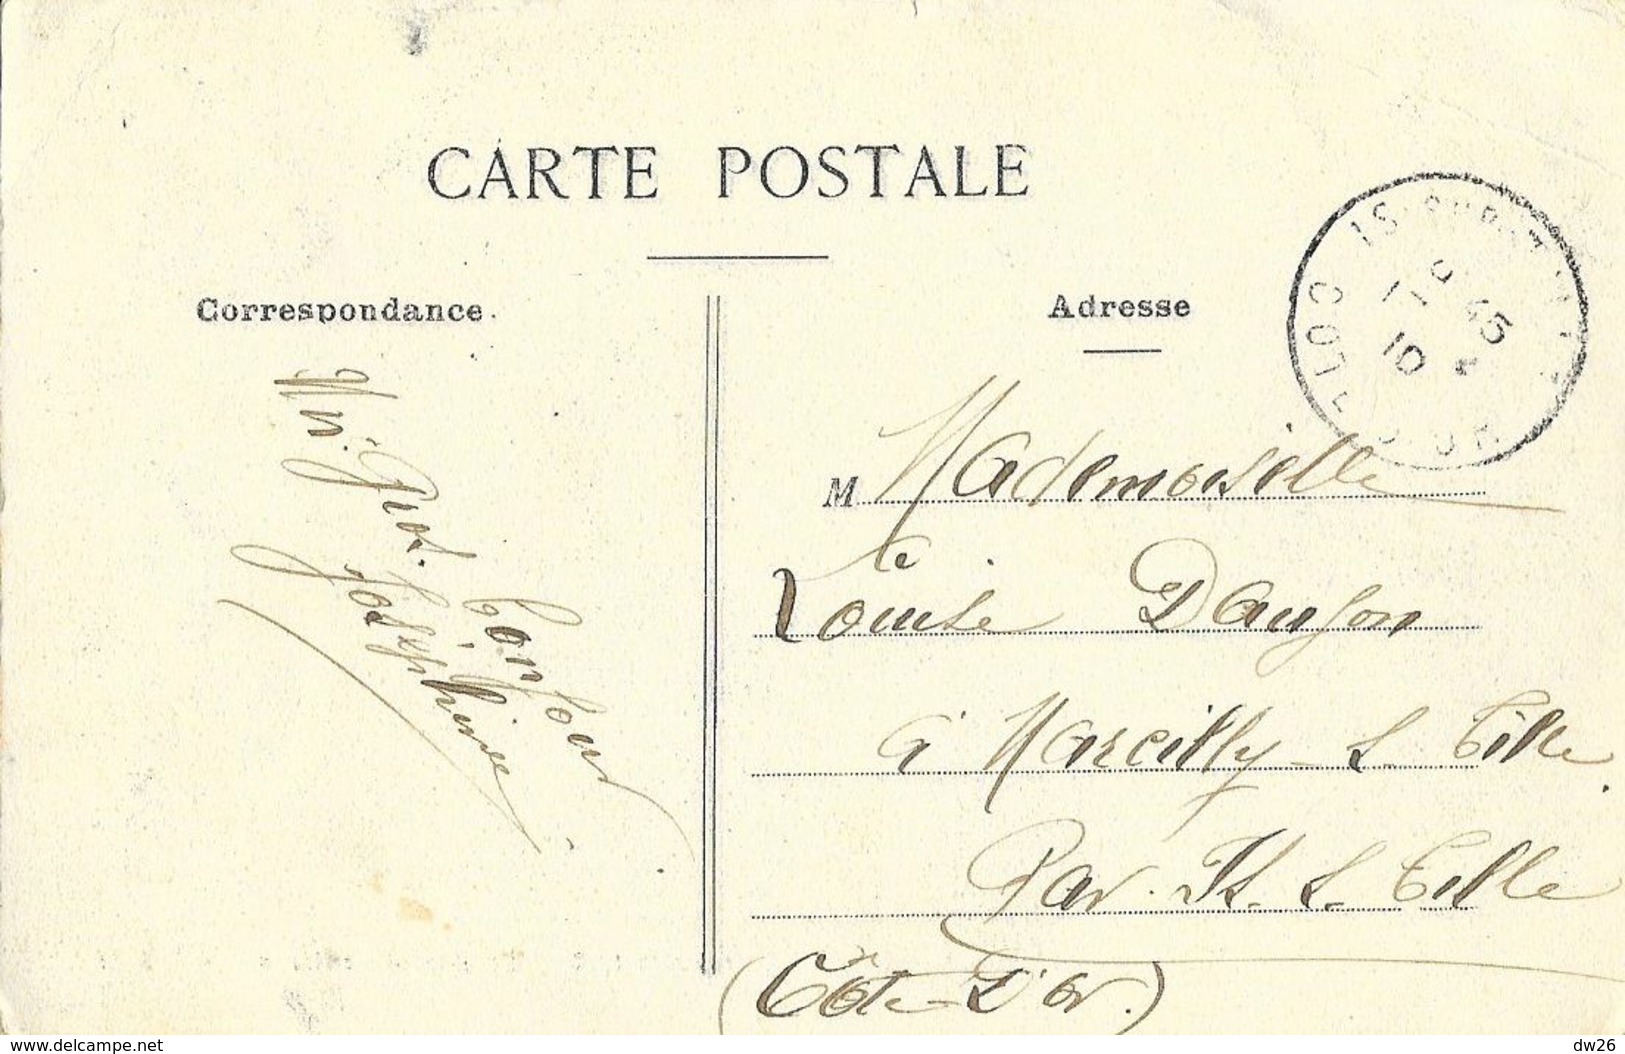 CARTE POSTALE
Correspondance.
Un gros bonjour
Joséphine
Adresse
M Mademoiselle
Louise Daujon
à Marcilly-s. Tille.
Par. Is. s. Tille
(Côte-d'or.)
IS-SUR-TILLE
15
10
COTE D'OR
www.delcampe.net
dw26